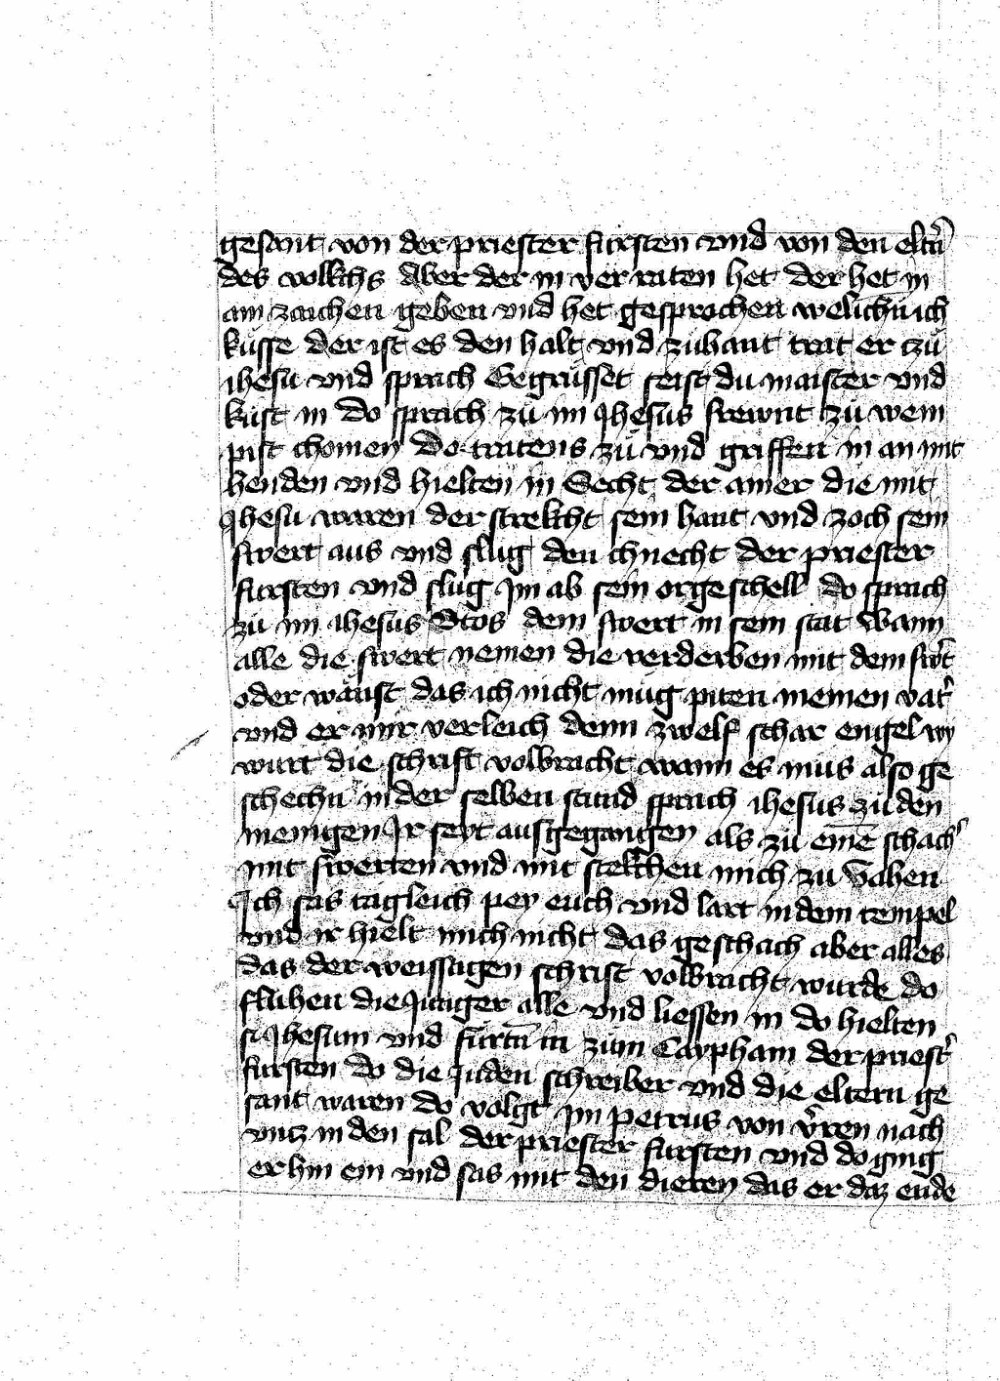 gesant von der priester fursten vnd von den elt̄n
des volkchs Aber der in ver raten het der het in
ain zaichen geben vnd het gesprochen welichn̄ ich
küsse der ist es den halt vnd zuhant trat er czü
ihesu vnd sprach Gegrüsset seist du maister vnd
kust in Do sprach zü im Jhesus frewnt zü wem
pist chomen Do tratens zü vnd griffen in an mit
henden vnd hielten in Secht der ainer die mit
Jhesu waren der strekcht sein hant vnd zoch sein
swert aus vnd slug den chnecht der priester
fursten vnd slüg Jm ab sein orgeschell do sprach
zu im ihesus Stos dein swert in sein stat Wann
alle die swert nemen die verderben mit dem sw̄t
oder wänst das ich nicht müg piten meinen vat̄
vnd er mir verleich denn zwelf schar engel wy
wurt die schrift volbracht wann es mus also ge
schechn̄ in der selben stund sprach ihesus zu den
menigen Jr seyt ausgegangen als zü ein̄e schach̄
mit swerten vnd mit stekchen mich zu vahen
Jch sas tagleich pey euch vnd lart in dem tempel
vnd ir hielt mich nicht das geschach aber alles
das der weissagen schrift volbracht wurde do
fluhen die Junger alle vnd liessen in do hielten
si Jhesum vnd fürtn̄ in zum Caypham der priest̄
fürsten do die Juden schreiber vnd die eltern ge
sant waren do volgt im petrus von v̄ren nach
vncz in den sal der priester fursten vnd do ging
er hin ein vnd sas mit den dieren das er daz ende